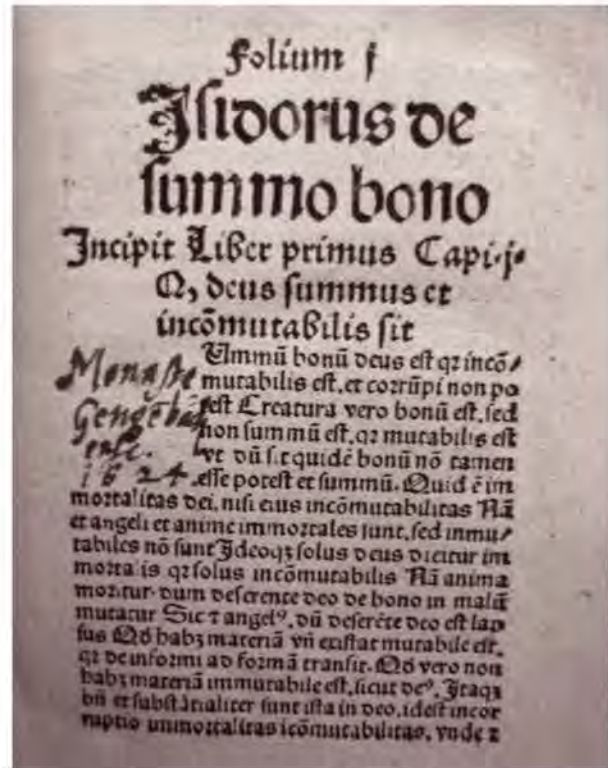 Folium j
Isidorus de
summo bono
Incipit Liber primus Capi.j.
Q, deus summus et
incōmutabilis sit
Ummū bonū deus est qꝛ incō/
mutabilis est. et corrūpi non po
test Creatura vero bonū est. sed
non summū est. qꝛ mutabilis est
vt dū sit quidē bonū nō tamen
esse potest et summū. Quid ē im
Monaste
Gengēbac
ense.
1624
mortalitas dei. nisi eius incōmutabilitas Nā
et angeli et anime immortales sunt. sed inmu/
tabiles nō sunt Ideoqꝫ solus deus dicitur im
mortalis qꝛ solus incōmutabilis Nā anima
moritur. dum deserente deo de bono in malū
mutatur Sic ⁊ angelꝰ. dū deserēte deo est lap
sus Qd habꝫ materiā vñ existat mutabile est.
qꝛ de informi ad formā transit. Qd vero non
habꝫ materiā immutabile est. sicut deꝰ. Itaqꝫ
bñ et substātialiter sunt ista in deo. idest incor
ruptio immortalitas icōmutabilitas. vnde ⁊